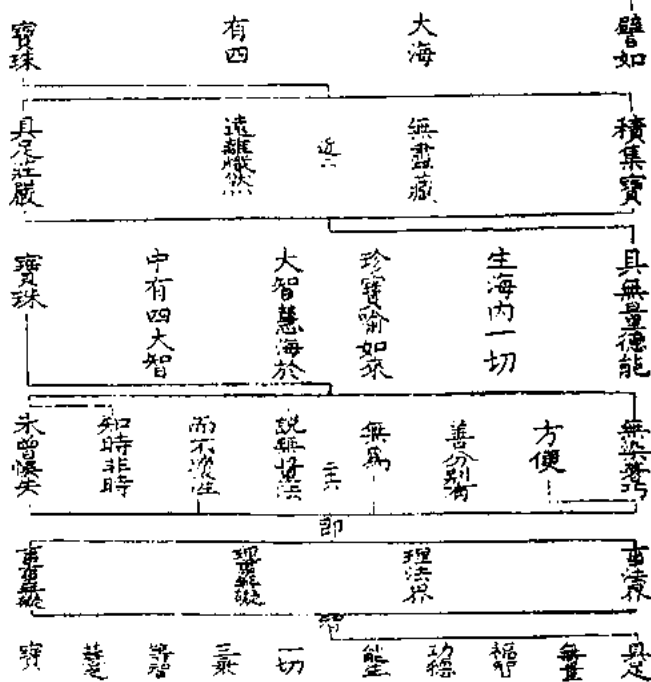 譬如
大海
有四
寶珠
積集寶
無盡藏
遠離熾然
具足莊嚴
具無量德能
生海內一切
珍寶喻如來
大智慧海於
中有四大智
寶珠
無染著巧
方便
善分別有
無為
說無量法
而不壞性
知時非時
未曾悞失
即
事法界
理法界
理事無礙
事事無礙
具足
無量
福智
功德
能生
一切
三乘
等智
菩提
寶